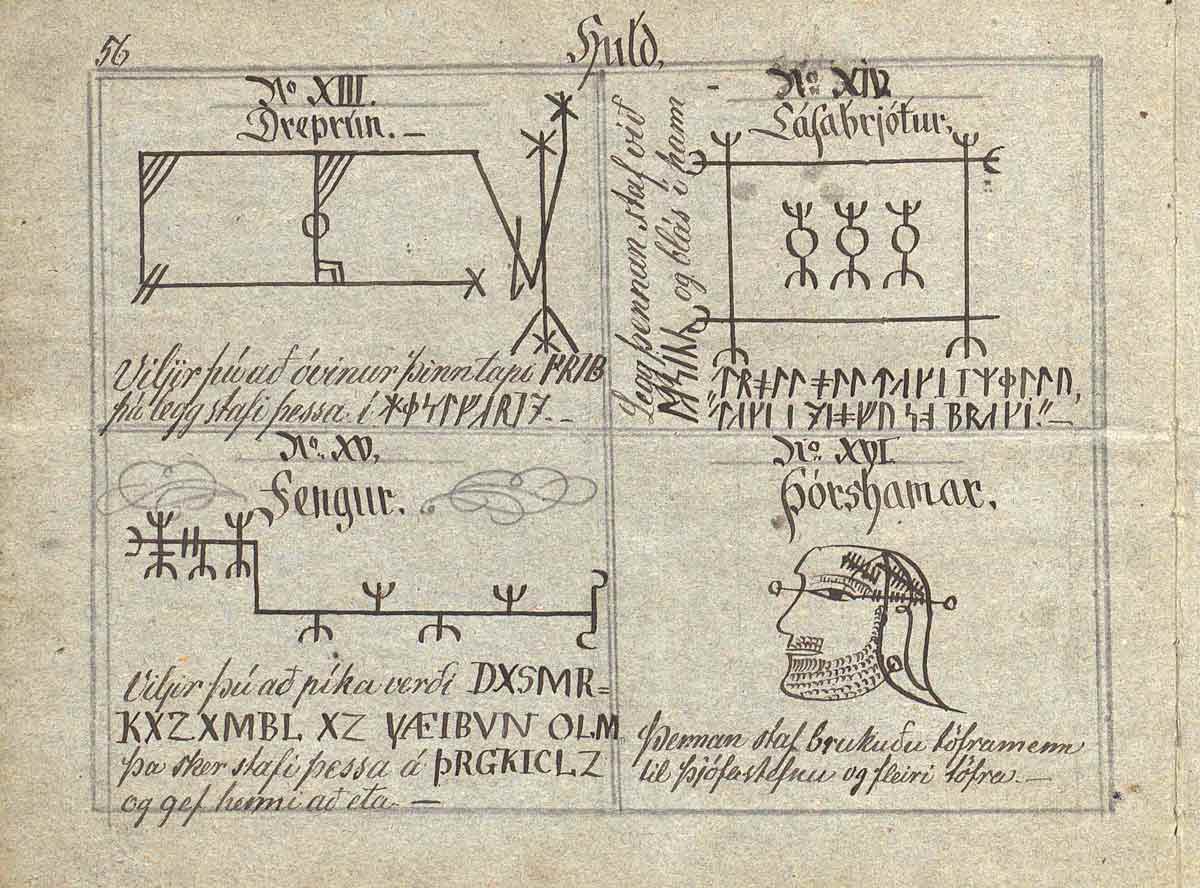 56
Huld,
No XIII.
Dreprún. —
Viljir þú að óvinur þinn tapi
þá legg stafi þessa í
No XIV.
Lásabrjótur,
Legg þennan staf við
og blás í hann
No XV,
Fengur.
Viljir þú að píka verði DXSMR=
KXZ XMBL XZ VÆIBVN OLM
þa sker stafi þessa á ÞRGKICLZ
og gef henni að eta. —
No XVI.
Þórshamar,
Þennan staf brukuðu töframenn
til þjófastefnu og fleiri töfra. —